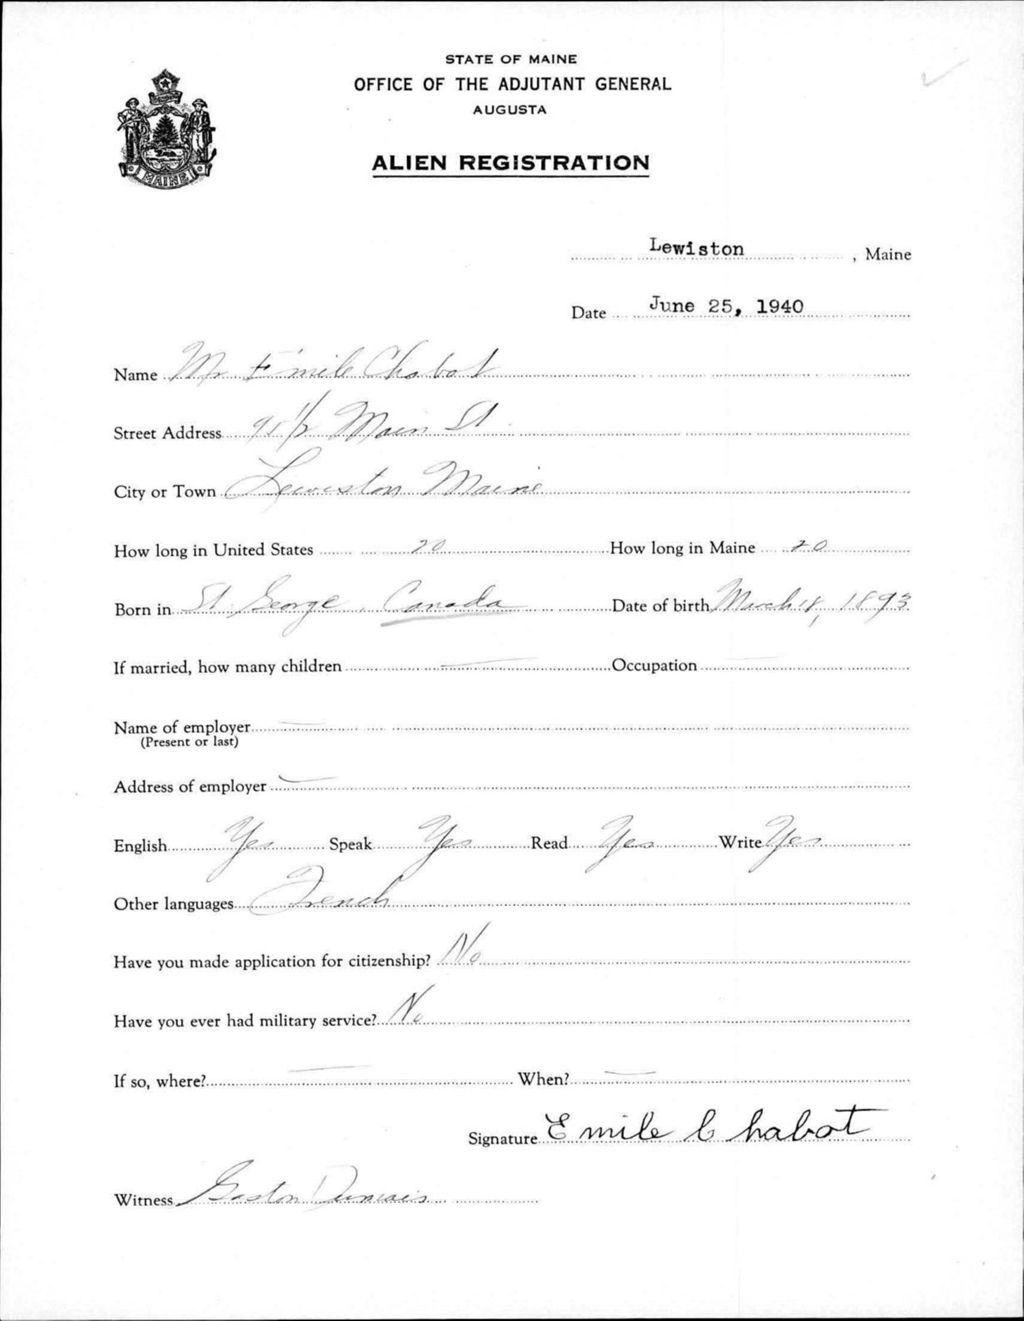 STATE OF MAINE
OFFICE OF THE ADJUTANT GENERAL
AUGUSTA
MAINE
ALIEN REGISTRATION
Lewiston, Maine
Date June 25, 1940
Name Mr Emile Chabot
Street Address 95 1/2 Main St
City or Town Lewiston Maine
How long in United States 20 How long in Maine 20
Born in St George, Canada Date of birth March 18, 1893
If married, how many children — Occupation —
Name of employer —
(Present or last)
Address of employer —
English Yes Speak Yes Read Yes Write Yes
Other languages French
Have you made application for citizenship? No
Have you ever had military service? No
If so, where? — When? —
Signature Emile Chabot
Witness Gaston Dumais